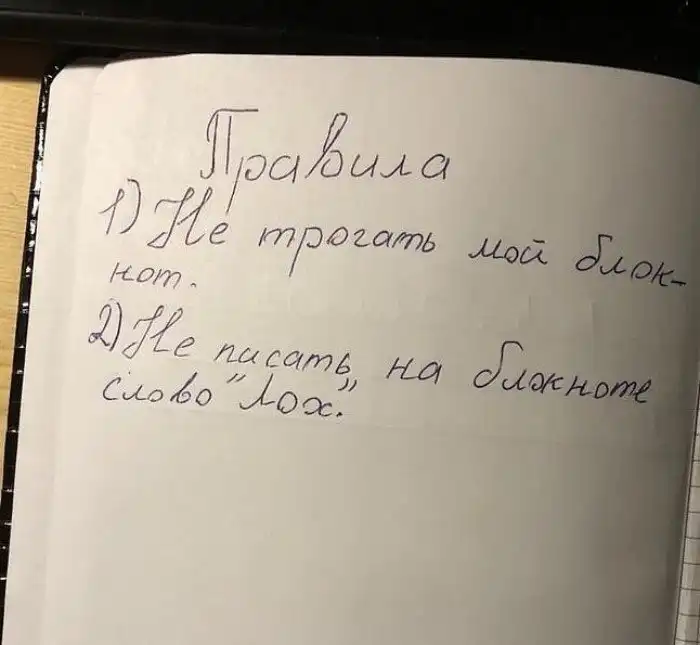 Правила
1) Не трогать мой блок-
нот.
2) Не писать на блжноте
слово "Лох".